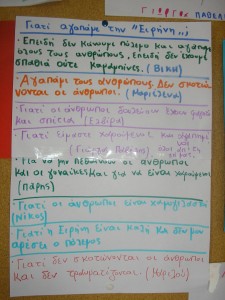 ΓΙΩΡΓΟΣ
Γιατί αγαπάμε την "Ειρήνη";
· Επειδή δεν κάνουμε πόλεμο και αγαπάμε
όλους τους ανθρώπους, Επειδή δεν έχουμε
σπαθιά ούτε καραμπίνες. (ΒΙΚΗ)
· Αγαπάμε τους ανθρώπους. Δεν σκοτώ
νονται οι άνθρωποι. (Μαριλένα)
· Γιατί οι άνθρωποι
και σπίτια (Ελπίδα)
· Γιατί είμαστε χαρούμενοι και
(Γιώργος
· Για να μην πεθαίνουν οι άνθρωποι
και οι γυναίκες και για να είναι χαρούμενοι
(Πάρης)
· Γιατί οι άνθρωποι είναι χαμογελαστοί
(Νίκος)
Γιατί η Ειρήνη είναι καλή και δεν μου
αρέσει ο πόλεμος
· Γιατί δεν σκοτώνονται οι άνθρωποι
και δεν τραυματίζονται.